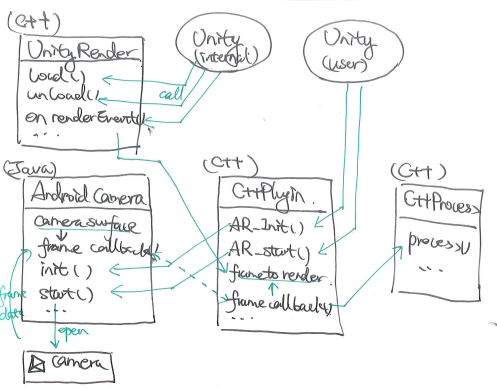 (C++)
UnityRender
load()
unload()
onrenderEvent()
...
Unity
(internal)
call
Unity
(user)
(Java)
AndroidCamera
camerasurface
frame callback()
init()
start()
...
frame
data
open
camera
(C++)
C++Plugin.
AR_Init()
AR_start()
frametorender
framecallback()
...
(C++)
C++Process
process()
...